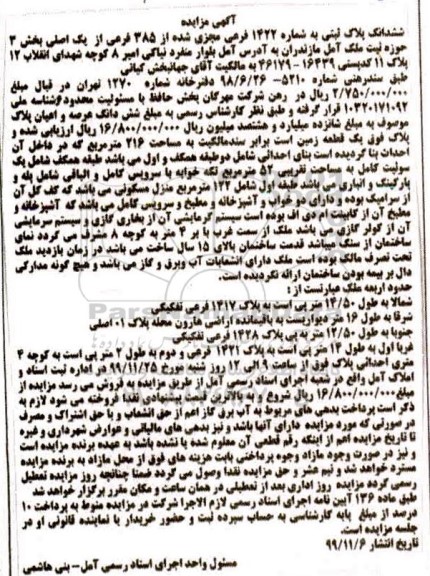 آگهی مزایده
ششدانگ پلاک ثبتی به شماره ۱۴۲۲ فرعی مجزی شده از ۳۸۵ فرعی از یک اصلی بخش ۳
حوزه ثبت ملک آمل مازندران به آدرس آمل بلوار منفرد نیاکی امیر ۸ کوچه شهدای انقلاب ۱۲
پلاک ۱۱ کدپستی ۱۶۴۳۹-۴۶۱۷۹ به مالکیت آقای جهانبخش کیانی
طبق سندرهنی شماره ۵۲۱۰-۹۸/۶/۲۶ دفترخانه شماره ۱۲۷۰ تهران در قبال مبلغ
۲/۷۵۰/۰۰۰/۰۰۰ ریال در رهن شرکت مهرگان بخش حافظ با مسئولیت محدود شناسه ملی
۱۰۳۲۰۱۷۱۰۹۲ قرار گرفته و طبق نظر کارشناس رسمی به مبلغ شش دانگ عرصه و اعیان پلاک
موصوف به مبلغ شانزده میلیارد و هشتصد میلیون ریال ۱۶/۸۰۰/۰۰۰/۰۰۰ ریال ارزیابی شده و
پلاک فوق یک قطعه زمین است برابر سندمالکیت به مساحت ۲۱۶ مترمربع که در داخل آن
احداث بنا گردیده است بنای احداثی شامل دوطبقه همکف و اول می باشد طبقه همکف شامل یک
سوئیت کامل به مساحت تقریبی ۵۲ مترمربع تکه خوابه با سرویس کامل و الباقی شامل پله و
پارکینگ و انباری می باشد طبقه اول شامل ۱۲۲ مترمربع منزل مسکونی می باشد که کف کل آن
از سرامیک بوده و دارای دو خواب و آشپزخانه و مطبخ و سرویس کامل می باشد که آشپزخانه و
مطبخ آن از کابینت ام دی اف بوده است سیستم گرمایشی آن از بخاری گازی و سیستم سرمایشی
آن از کولر گازی می باشد ملک از سمت غرب با بر ۴ متر به کوچه ۸ مشرف می گردد نمای
ساختمان از سنگ میباشد قدمت ساختمان بالای ۱۵ سال ساخت می باشد در زمان بازدید ملک
تحت تصرف مالک بوده است ملک دارای انشعابات آب وبرق و گاز می باشد و هیچ گونه مدارکی
دال بر بیمه بودن ساختمان ارائه نگردیده است.
حدود اربعه ملک عبارتست از:
شمالا به طول ۱۴/۵۰ متر پی است به پلاک ۱۴۱۷ فرعی تفکیکی
شرقا به طول ۱۶ متر درواریست به باقیمانده اراضی هارون محله پلاک ۰۱ اصلی
جنوبا به طول ۱۲/۵۰ متر پی پلاک ۱۴۲۸ فرعی تفکیکی
غربا اول به طول ۱۴ متر پی است به پلاک ۱۴۲۱ فرعی و دوم به طول ۲ متر پی است به کوچه ۴
متری احداثی پلاک فوق از ساعت ۹ الی ۱۲ روز شنبه مورخ ۹۹/۱۱/۲۵ در اداره ثبت اسناد و
املاک آمل واقع در شعبه اجرای اسناد رسمی آمل از طریق مزایده به فروش می رسد مزایده از
مبلغ ۱۶/۸۰۰/۰۰۰/۰۰۰ ریال شروع و به بالاترین قیمت پیشنهادی نقدا فروخته می شود لازم به
ذکر است پرداخت بدهی های مربوط به آب برق گاز اعم از حق انشعاب و یا حق اشتراک و مصرف
در صورتی که مورد مزایده دارای آنها باشد و نیز بدهی های مالیاتی و عوارض شهرداری و غیره
تا تاریخ مزایده اعم از اینکه رقم قطعی آن معلوم شده یا نشده باشد به عهده برنده مزایده است
و نیز در صورت وجود مازاد وجوه پرداختی بابت هزینه های فوق از محل مازاد به برنده مزایده
مسترد خواهد شد و نیم عشر و حق مزایده نقدا وصول می گردد ضمنا چنانچه روز مزایده تعطیل
رسمی گردد مزایده روز اداری بعد از تعطیلی در همان ساعت و مکان مقرر برگزار خواهد شد
طبق ماده ۱۳۶ آیین نامه اجرای اسناد رسمی لازم الاجرا شرکت در مزایده منوط به پرداخت ۱۰
درصد از مبلغ پایه کارشناسی به حساب سپرده ثبت و حضور خریدار یا نماینده قانونی او در
جلسه مزایده است.
تاریخ انتشار ۹۹/۱۱/۶
مسئول واحد اجرای اسناد رسمی آمل- بنی هاشمی